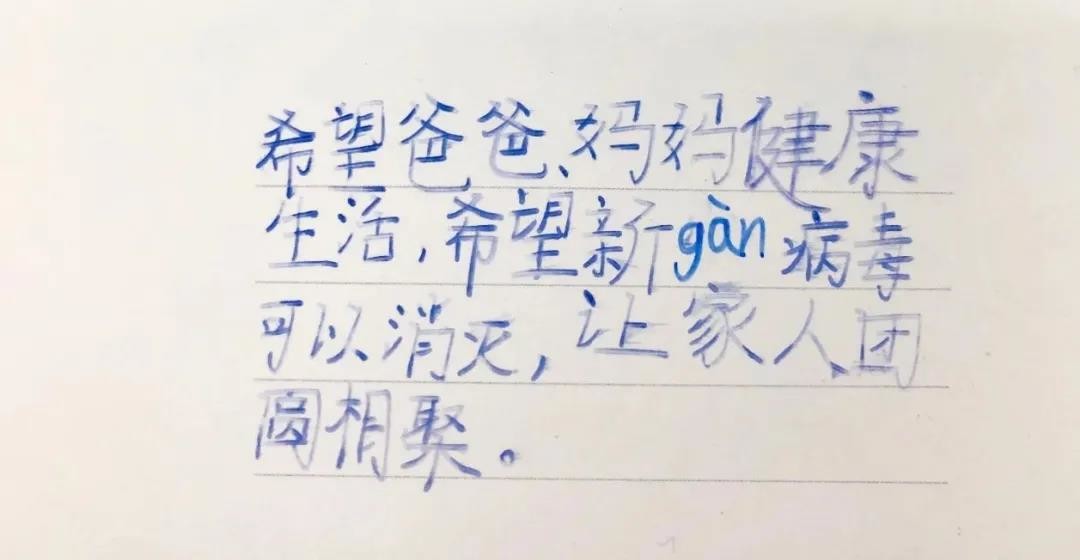 希望爸爸、妈妈健康
生活,希望新gàn病毒
可以消灭,让家人团
圆相聚。